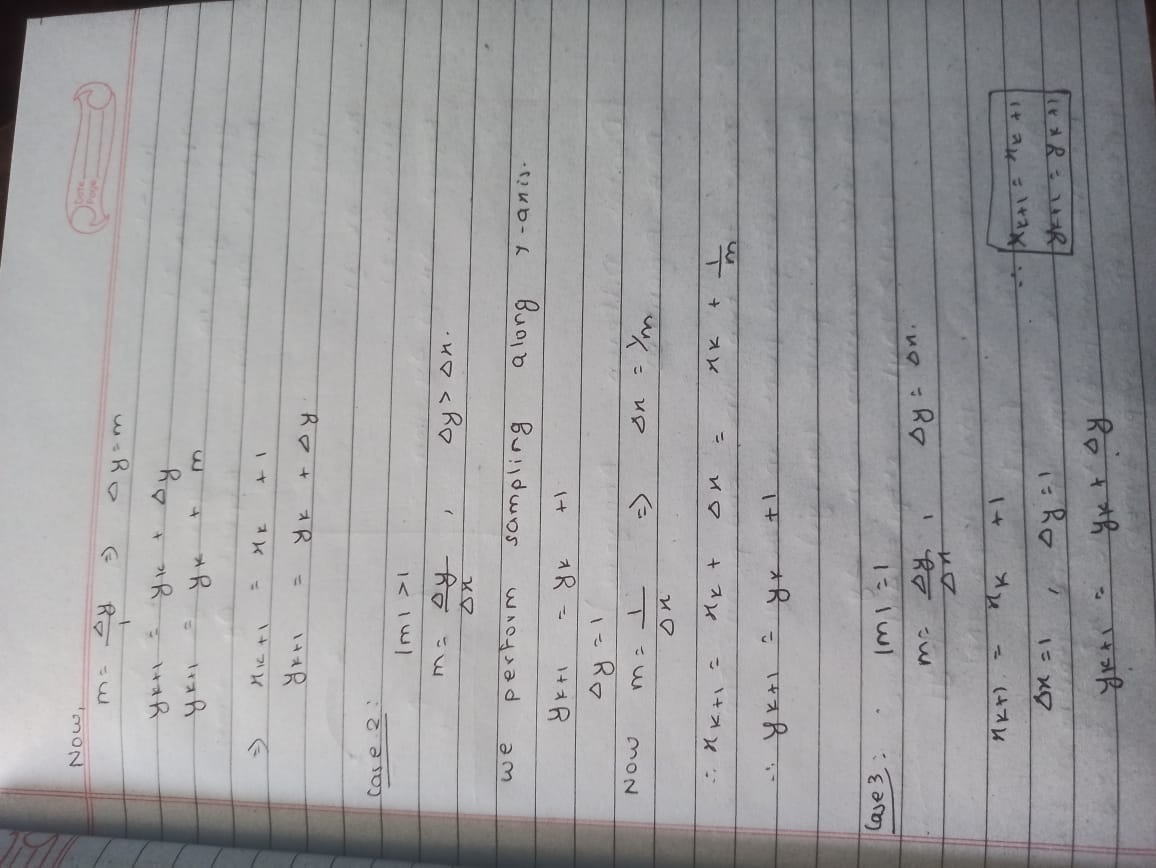 Date
Page
Now,
m = Δy/1 ⇒ Δy = m
yk+1 = yk + Δy
yk+1 = yk + m
⇒ xk+1 = xk + 1
yk+1 = yk + Δy
Case 2:
|m| > 1
m = Δy/Δx , Δy > Δx.
we perform sampling along y-axis.
yk+1 = yk + 1
Δy = 1
Now m = 1/Δx ⇒ Δx = 1/m
∴ xk+1 = xk + Δx = xk + 1/m
∴ yk+1 = yk + 1
Case 3: |m| = 1
m = Δy/Δx , Δy = Δx.
xk+1 = xk + 1 ∴ xk+1 = xk + 1
Δx = 1 , Δy = 1 yk+1 = yk + 1
yk+1 = yk + Δy